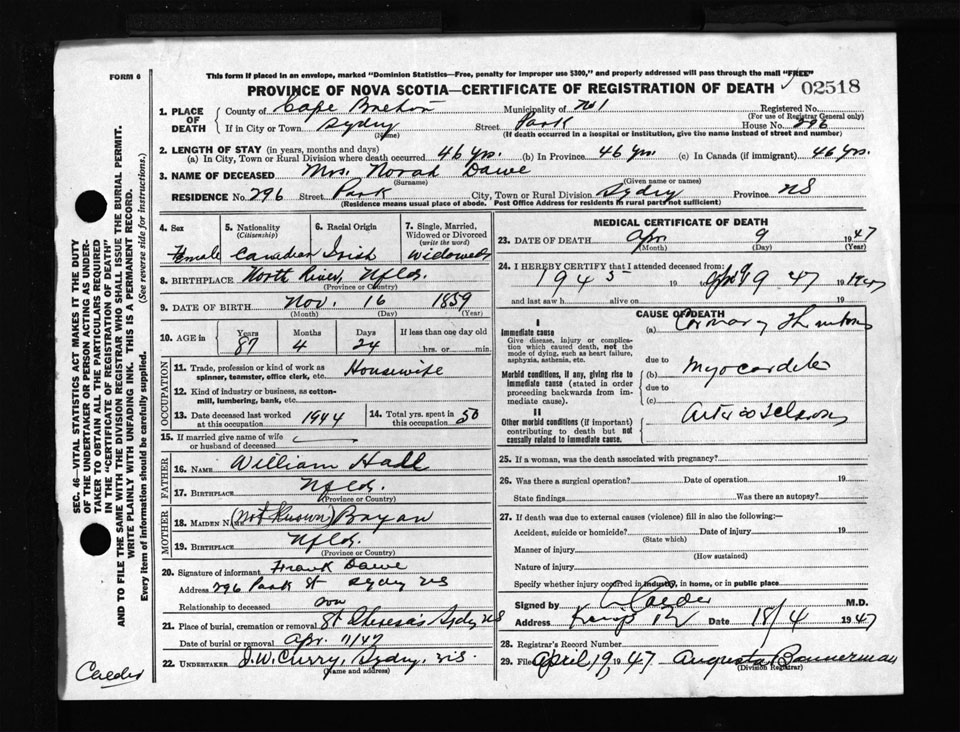 FORM 6
This form if placed in an envelope, marked "Dominion Statistics—Free, penalty for improper use $300," and properly addressed will pass through the mail "FREE"
PROVINCE OF NOVA SCOTIA—CERTIFICATE OF REGISTRATION OF DEATH
02518
1. PLACE OF DEATH
County of Cape Breton Municipality of No 1 Registered No.
(For use of Registrar General only)
If in City or Town Sydney Street Park House No. 296
(Name) (If death occurred in a hospital or institution, give the name instead of street and number)
2. LENGTH OF STAY (in years, months and days)
(a) In City, Town or Rural Division where death occurred 46 yrs. (b) In Province 46 yrs. (c) In Canada (if immigrant) 46 yrs.
3. NAME OF DECEASED Mrs. Norah Dawe
(Surname) (Given name or names)
RESIDENCE No. 296 Street Park City, Town or Rural Division Sydney Province NS
(Residence means usual place of abode. Post Office Address for residents in rural parts not sufficient)
4. Sex Female
5. Nationality (Citizenship) Canadian
6. Racial Origin Irish
7. Single, Married, Widowed or Divorced (write the word) Widowed
8. BIRTHPLACE North River, Nfld.
(Province or Country)
9. DATE OF BIRTH Nov. 16 1859
(Month) (Day) (Year)
10. AGE in Years 87 Months 4 Days 24 If less than one day old
hrs. or min.
OCCUPATION
11. Trade, profession or kind of work as spinner, teamster, office clerk, etc. Housewife
12. Kind of industry or business, as cotton-mill, lumbering, bank, etc.
13. Date deceased last worked at this occupation 1944
14. Total yrs. spent in this occupation 50
15. If married give name of wife or husband of deceased
FATHER
16. NAME William Hall
17. BIRTHPLACE Nfld.
(Province or Country)
MOTHER
18. MAIDEN NAME (Not Known) Bryan
19. BIRTHPLACE Nfld.
(Province or Country)
20. Signature of informant Frank Dawe
Address 296 Park St Sydney NS
Relationship to deceased son
21. Place of burial, cremation or removal St Theresa's Sydney NS
Date of burial or removal Apr. 11/47
22. UNDERTAKER J.W. Curry, Sydney, N.S.
(Name and address)
MEDICAL CERTIFICATE OF DEATH
23. DATE OF DEATH Apr 9 1947
(Month) (Day) (Year)
24. I HEREBY CERTIFY that I attended deceased from:
1945 19 to Apr 9 19 47
and last saw h alive on 19
CAUSE OF DEATH
I
Immediate cause
Give disease, injury or complication which caused death, not the mode of dying, such as heart failure, asphyxia, asthenia, etc.
(a) Coronary Thrombosis
due to
Morbid conditions, if any, giving rise to immediate cause (stated in order proceeding backwards from immediate cause).
(b) Myocarditis
due to
(c)
II
Other morbid conditions (if important) contributing to death but not causally related to immediate cause.
25. If a woman, was the death associated with pregnancy?
26. Was there a surgical operation? Date of operation 19
State findings Was there an autopsy?
27. If death was due to external causes (violence) fill in also the following:—
Accident, suicide or homicide? Date of injury 19
(State which)
Manner of injury
(How sustained)
Nature of injury
Specify whether injury occurred in industry, in home, or in public place
Signed by Calder M.D.
Address Date 18/4 1947
28. Registrar's Record Number
29. Filed April 19 1947 Augusta Bannerman
(Division Registrar)
SEC. 46—VITAL STATISTICS ACT MAKES IT THE DUTY
OF THE UNDERTAKER OR PERSON ACTING AS UNDER-
TAKER TO OBTAIN ALL THE PARTICULARS REQUIRED
IN THE "CERTIFICATE OF REGISTRATION OF DEATH"
AND TO FILE THE SAME WITH THE DIVISION REGISTRAR WHO SHALL ISSUE THE BURIAL PERMIT.
WRITE PLAINLY WITH UNFADING INK. THIS IS A PERMANENT RECORD.
Every item of information should be carefully supplied. (See reverse side for instructions.)
Calder